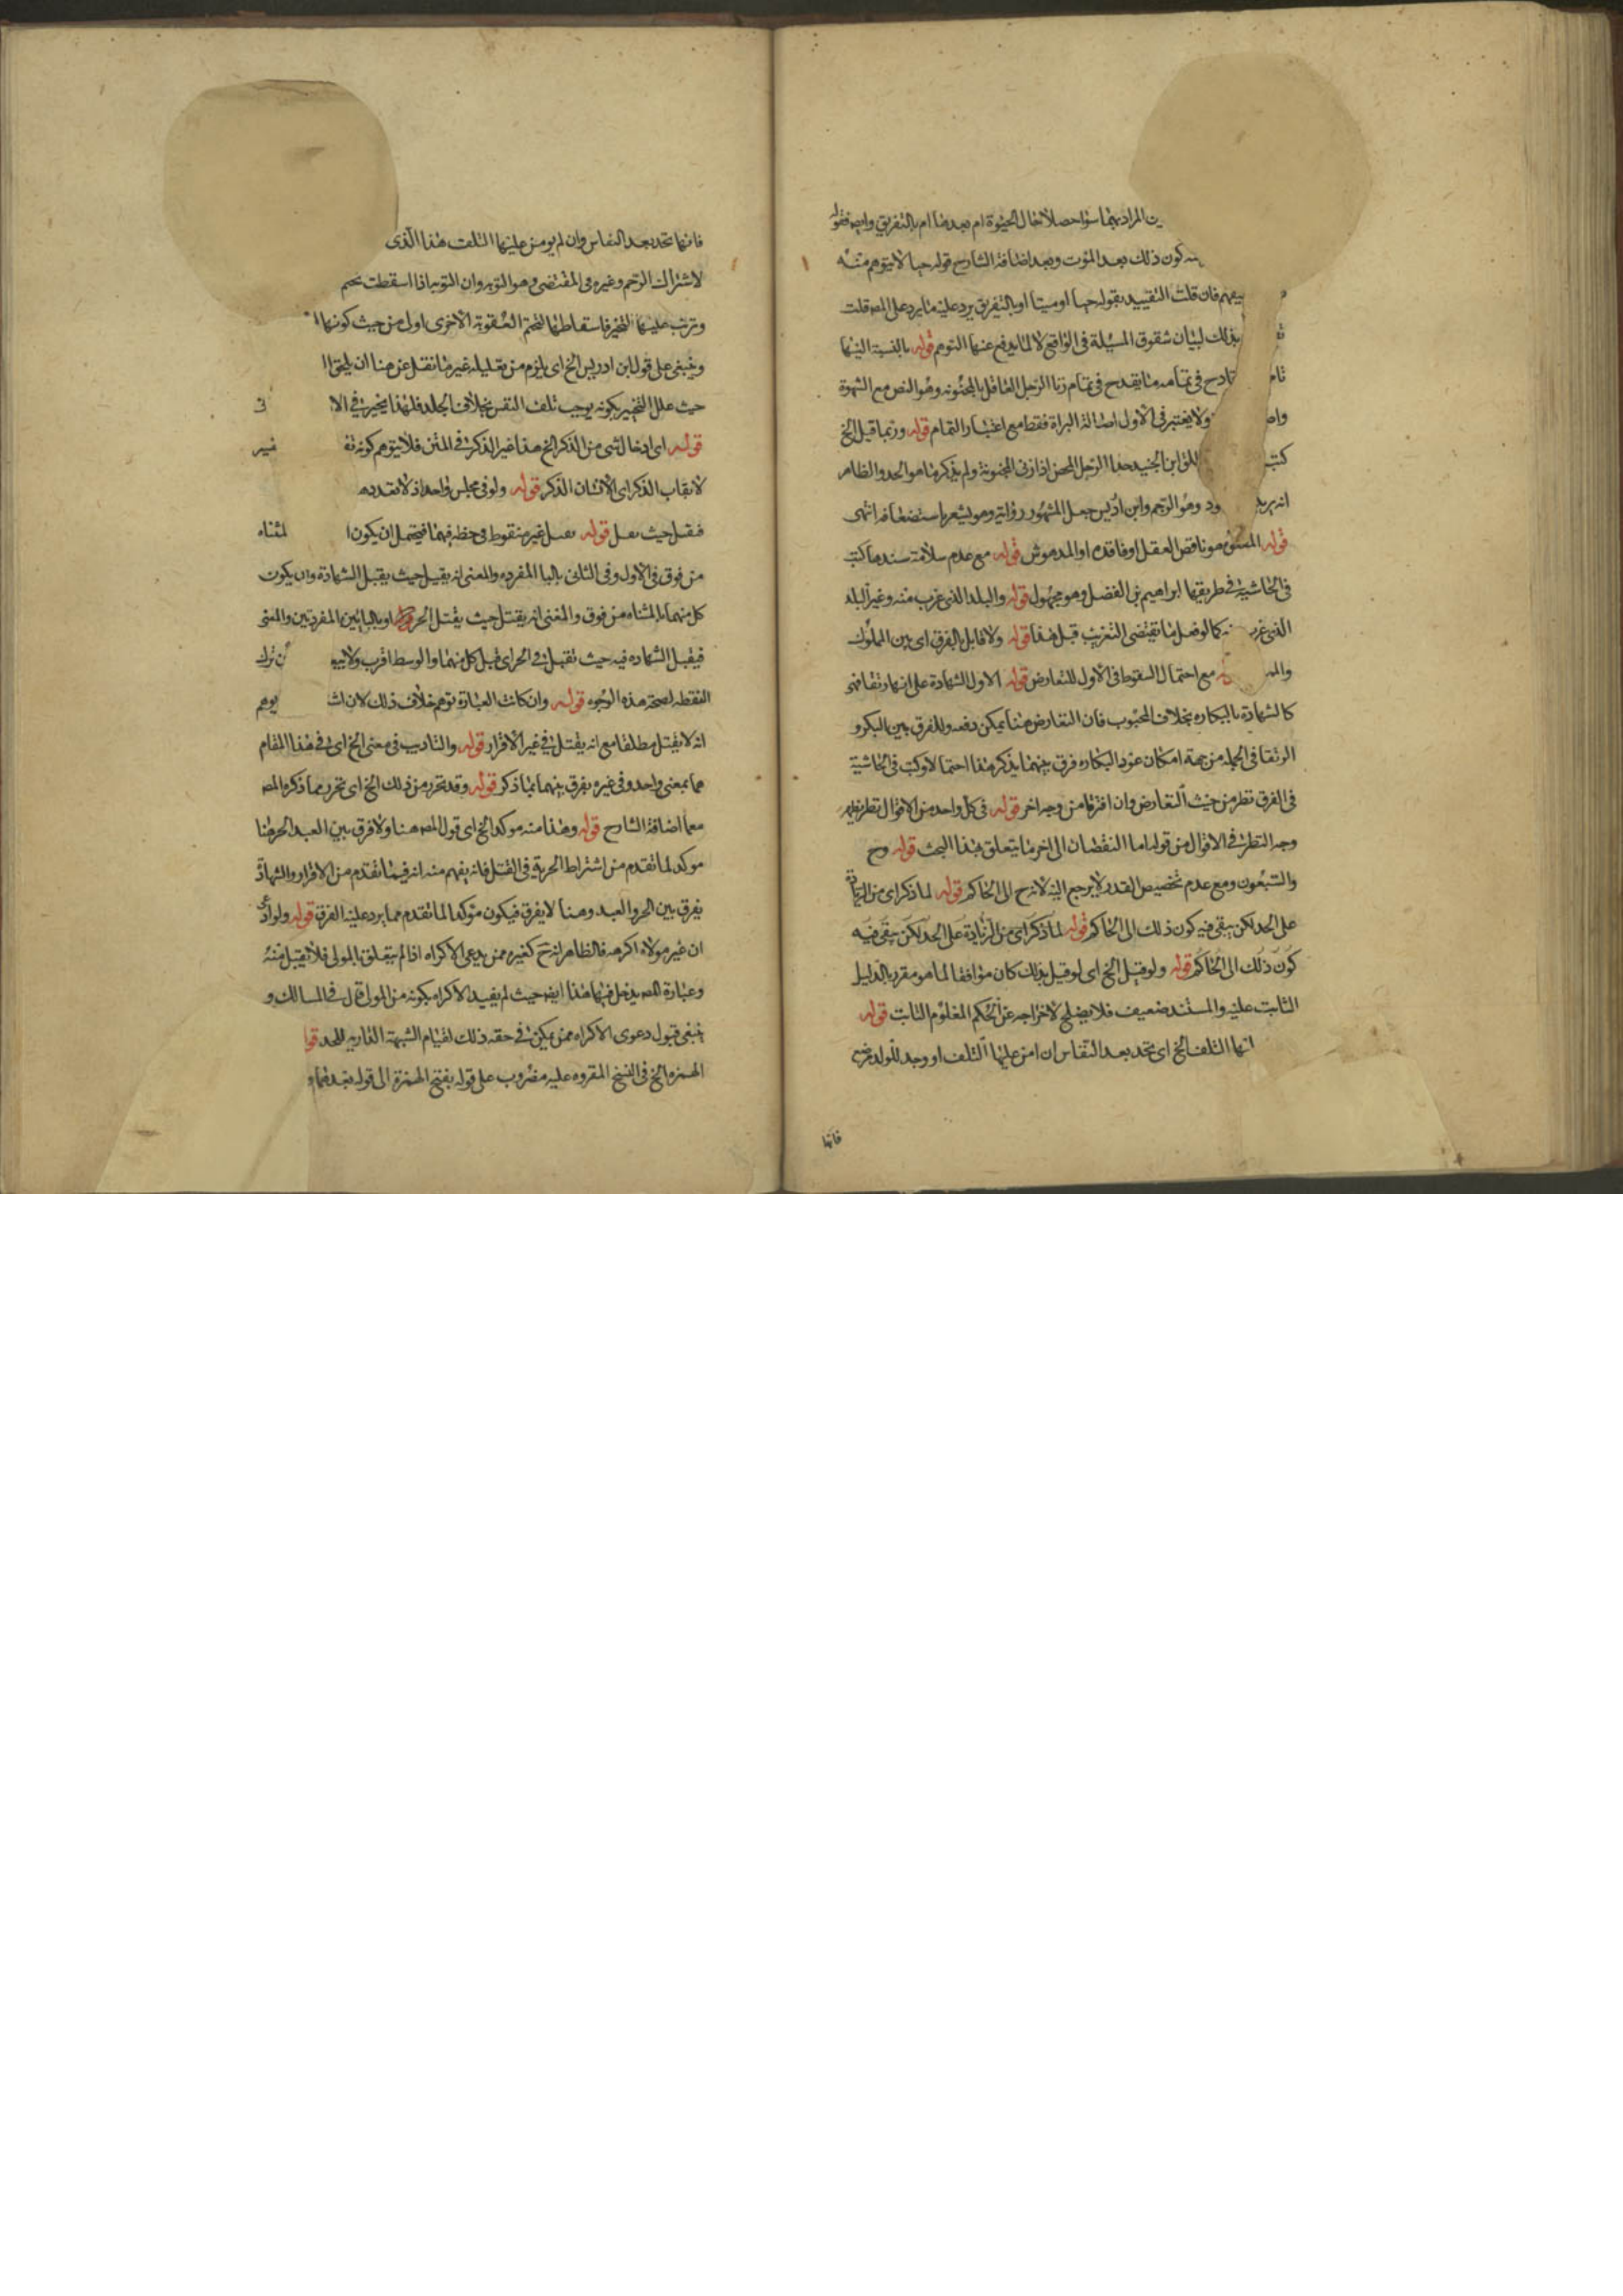 المراد بهما سواء حصلا حال الحيوة ام بعدها ام بالتفريق وايضا فقوله
كون ذلك بعد الموت وبعد اضافة الشارح قوله حيا لا يتوهم منه
فان قلت التقييد بقوله حيا او ميتا او بالتفريق يرد عليه ما يرد على المص قلت
بذلك لبيان شقوق المسئلة في الواقع لا لما يدفع عنها التوهم قوله بالنسبة اليها
قادح في تمامه ما يقدح في تمام زنا الرجل العاقل بالمجنونه وهو النص مع الشهوة
ولا يعتبر في الاول اصالة البراة فقط مع اعتبار التمام قوله وربما قيل الخ
كتب ابن الجنيد حد الرجل المحصن اذا زنى المجنونة ولم يذكر ما هو الحد والظاهر
انه يريد وهو الرجم وابن ادريس جعل المشهور رواية وهو يشعر باستضعافه انتهى
قوله هو ناقص العقل او فاقده او المدهوش قوله مع عدم سلامة سندها كتب
في الحاشية في طريقها ابراهيم بن الفضل وهو مجهول قوله والبلد الذي غرب منه وغير البلد
الذي كما لو فعل ما يقتضى التغريب قبل هذا قوله ولا قايل بالفرق اى بين المملوك
مع احتمال السقوط في الاول للتعارض قوله الاول الشهادة على انها رتقا فهو
كالشهادة بالبكاره بخلاف المجبوب فان التعارض هنا يمكن دفعه وللفرق بين البكر و
الرتقا في الجمله من جهة امكان عود البكاره فرق بينهما يذكر هذا احتمالا وكتب في الحاشية
في الفرق نظر من حيث التعارض وان افترقا من وجه اخر قوله في كل واحد من الاقوال نظر يظهر
وجه النظر في الاقوال من قوله اما النقصان الى اخر ما يتعلق بهذا البحث قوله وح
والتسعون ومع عدم تخصيص القدر لا يرجع اليه لانه ح الى الحاكم قوله لما ذكر اى من الزيادة
على الحد لكن يبقى فيه كون ذلك الى الحاكم قوله لما ذكر اى من الزيادة على الحد لكن يبقى فيه
كون ذلك الى الحاكم قوله ولو قيل الخ اى لو قيل بذلك كان موافقا لما هو مقرر بالدليل
الثابت عليه والمستند ضعيف فلا يصلح لاخراجه عن الحكم المعلوم الثابت قوله
التلف الخ اى تحد بعد النفاس ان امن عليها التلف او وجد للولد مرضع
فانها
فانها تحد بعد النفاس وان لم يومن عليها التلف هذا الذى
لاشتراك الرجم وغيره في المقتضى وهو التوبه وان التوبه اذا اسقطت تحتم
وترتب عليها التخير فاسقاطها لتحتم العقوبة الاخرى اولى من حيث كونها
وينبغى على قول ابن ادريس الخ اى يلزم من تعليله غير ما نقل عن هنا ان يلحق
حيث علل التخيير بكونه يوجب تلف النفس بخلاف الجلد فلهذا يخير في
قوله اى ادخال شى من الذكر الخ هذا غير الذكر في المتن فلا يتوهم كونه
الذكر اى الانسان الذكر قوله ولو في مجلس واحد اذ لا تعدد
حيث قوله غير منقوط في خطه فيهما فيحتمل ان يكون المثناه
من فوق في الاول وفي الثانى بالبا المفرده والمعنى انه يقتل حيث يقبل الشهادة وان يكون
كل منهما بالمثناه من فوق والمعنى انه يقتل حيث يقتل الحر او بالبائين المفردتين والمعنى
فيقبل الشهاده فيه حيث تقبل في الحر اى قبل كل منهما والوسط اقرب ترك
النقطه لصحة هذه الوجوه قوله وان كانت العبارة توهم خلاف ذلك لان يوهم
انه لا يقتل مطلقا مع انه يقتل في غير الاقرار قوله والتاديب في معنى الخ اى في هذا المقام
هما بمعنى واحد وفي غيره يفرق بينهما بما ذكر قوله وقد تحرر من ذلك الخ اى تحرر مما ذكره المص
مما اضافه الشارح قوله وهذا منه موكد الخ اى قول المص هنا ولا فرق بين العبد الحر هنا
موكد لما تقدم من اشتراط الحرية في القتل فانه يفهم منه انه فيما تقدم من الاقرار والشهادة
يفرق بين الحر والعبد وهنا لا يفرق فيكون مؤكدا لما تقدم مما يرد عليه الفرق قوله ولو ادعى
ان غير مولاه اكرهه فالظاهر انه ح كغيره ممن يدعى الاكراه اذا لم يتعلق بالمولى فلا يقبل منه
وعبارة المص يدخل فيها هذا ايضا حيث لم يقيد الاكراه بكونه من المولى قال في المسالك و
ينبغى قبول دعوى الاكراه ممن يمكن في حقه ذلك لقيام الشبهة الداريه للحد قوله
الهمزه الخ في النسخ المقروه عليه مضروب على قوله بفتح الهمزة الى قوله